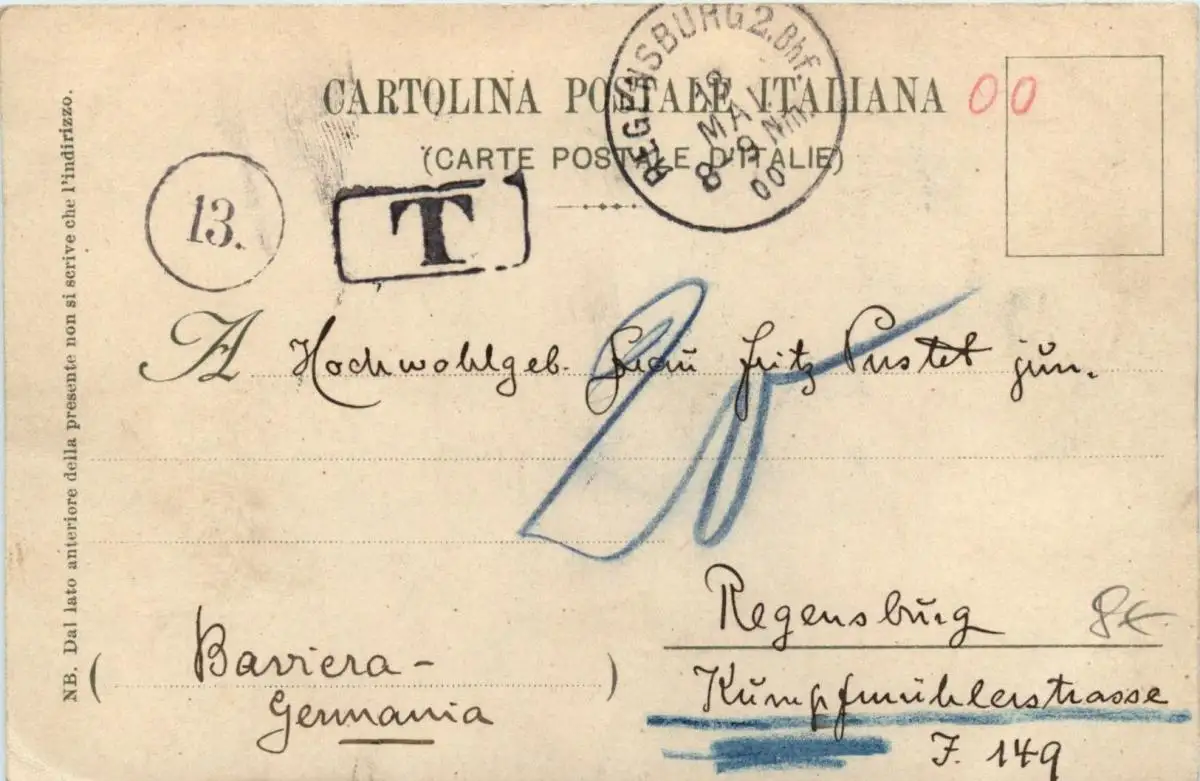 CARTOLINA POSTALE ITALIANA
(CARTE POSTALE D'ITALIE)
00
REGENSBURG 2. Bhf.
19
MAI
8-9 Nm.
00
13.
T
A Hochwohlgeb. Frau Fritz Pustet jun.
20
Regensburg
8€
Kumpfmühlerstrasse
J. 149
(Baviera-)
Germania
NB. Dal lato anteriore della presente non si scrive che l'indirizzo.